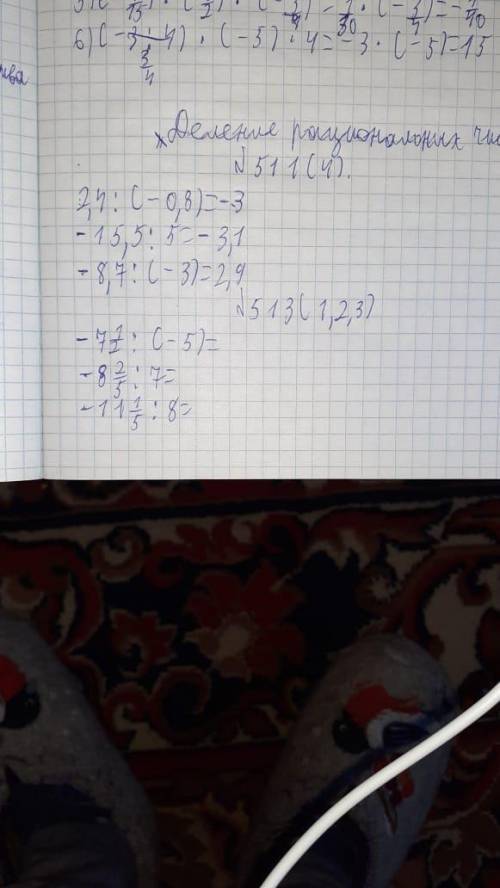 6) (-3/4 · 4) · (-5) · 4 = -3 · (-5) = 15
Деление рациональных
№511(4).
2,4 : (-0,8) = -3
-15,5 : 5 = -3,1
-8,7 : (-3) = 2,9
№513(1,2,3)
-7 1/2 : (-5) =
-8 2/5 : 7 =
-11 1/5 : 8 =